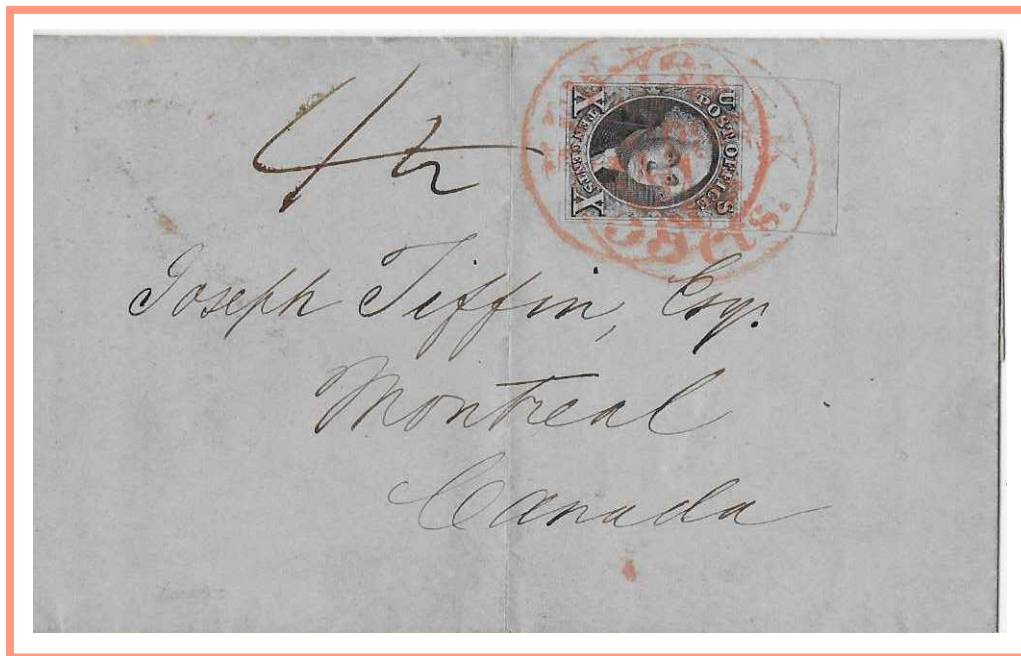 4½
U S
POST OFFICE
TEN CENTS
X X
10 cts.
Joseph Tiffin, Esq.
Montreal
Canada